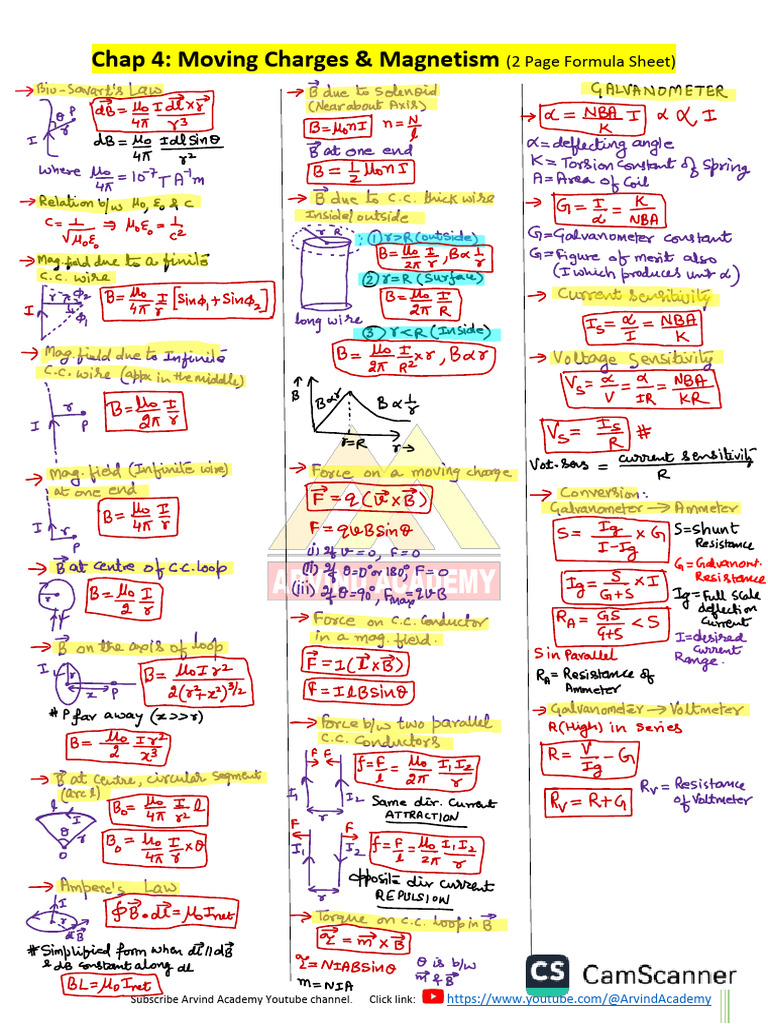 Chap 4: Moving Charges & Magnetism (2 Page Formula Sheet)
→ Bio-Savart's Law
θ P
r
I
d𝐁⃗ = μ₀/4π I d𝐥⃗ × 𝐫⃗ / r³
dB = μ₀/4π I dl sinθ / r²
where μ₀/4π = 10⁻⁷ T A⁻¹ m
→ Relation b/w μ₀, ε₀ & c
c = 1/√μ₀ε₀ ⇒ μ₀ε₀ = 1/c²
→ Mag. field due to a finite
C.C. wire
I r ϕ₂ ϕ₁
B = μ₀/4π I/r [Sinϕ₁ + Sinϕ₂]
→ Mag. field due to Infinite
C.C. wire (appx in the middle)
I r P
B = μ₀/2π I/r
→ Mag. field (Infinite wire)
at one end
I r P
B = μ₀/4π I/r
→ B⃗ at centre of C.C. loop
r
I
B = μ₀/2 I/r
→ B⃗ on the axis of loop
I r x P
B = μ₀ I r² / 2(r²+x²)^3/2
# P far away (x>>r)
B = μ₀/2 I r²/x³
→ B⃗ at centre, circular segment
(arc l)
l I θ r O
B₀ = μ₀/4π I/r² l
B₀ = μ₀/4π I/r × θ
→ Ampere's Law
I r dB⃗
∮ B⃗ • dl⃗ = μ₀ Inet
# Simplified form when dl⃗ || dB⃗
& dB constant along dl
BL = μ₀ Inet
→ B⃗ due to Solenoid
(Near about Axis)
B = μ₀ n I n = N/l
B⃗ at one end
B = 1/2 μ₀ n I
→ B⃗ due to C.C. thick wire
Inside/outside
r R
long wire
① r>R (outside)
B = μ₀/2π I/r , B∝ 1/r
② r=R (Surface)
B = μ₀/2π I/R
③ r<R (Inside)
B = μ₀/2π I/R² × r , B∝r
B
B∝r B∝ 1/r
r=R r→
→ Force on a moving charge
F⃗ = q (v⃗ × B⃗)
F = qvBsinθ
(i) if v=0, F=0
(ii) if θ=0° or 180° F=0
(iii) if θ=90°, Fmax = qvB
ARVIND ACADEMY
→ Force on C.C. Conductor
in a mag. field.
F⃗ = I (l⃗ × B⃗)
F = IlBsinθ
→ Force b/w two parallel
C.C. Conductors
F F
I₁ I₂
r
f = F/l = μ₀/2π I₁I₂/r
Same dir. Current
ATTRACTION
F F
I₁ I₂
r
f = F/l = μ₀/2π I₁I₂/r
opposite dir current
REPULSION
→ Torque on C.C. loop in B⃗
τ⃗ = m⃗ × B⃗
τ = NIABsinθ
m = NIA
θ is b/w
m⃗ & B⃗
GALVANOMETER
→ α = NBA/K I α ∝ I
α = deflecting angle
K = Torsion constant of Spring
A = Area of Coil
→ G = I/α = K/NBA
G = Galvanometer constant
G = Figure of merit also
(I which produces unit α)
→ Current Sensitivity
Is = α/I = NBA/K
→ Voltage Sensitivity
Vs = α/V = α/IR = NBA/KR
Vs = Is/R #
Vot. sens = current sensitivity/R
→ Conversion:
Galvanometer → Ammeter
S = Ig/I-Ig × G
S = Shunt
Resistance
G = Galvanont.
Resistance
Ig = S/G+S × I
Ig = Full Scale
deflection
Current
RA = GS/G+S < S
I = desired
Current
Range.
S in Parallel
RA = Resistance of
Ammeter
→ Galvanometer → Voltmeter
R (High) in series
R = V/Ig - G
RV = R+G
RV = Resistance
of Voltmeter
CS CamScanner
Subscribe Arvind Academy Youtube channel. Click link: https://www.youtube.com/@ArvindAcademy